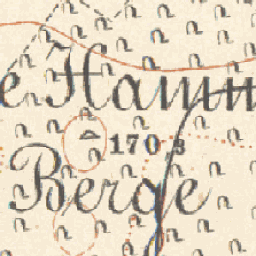 e Hamm
170,3
Berge